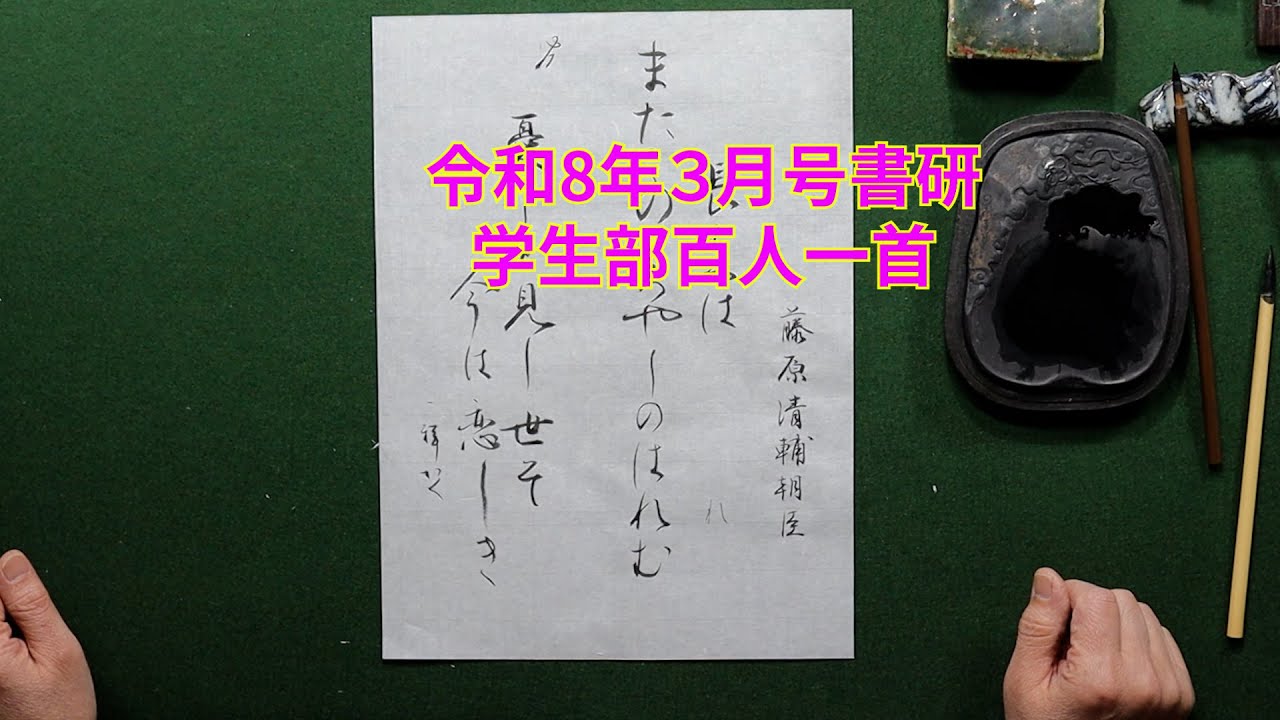 令和8年３月号書研
学生部百人一首
藤原清輔朝臣
長は
れ
またのやしのはれむ
憂し見し世そ
今は恋しき